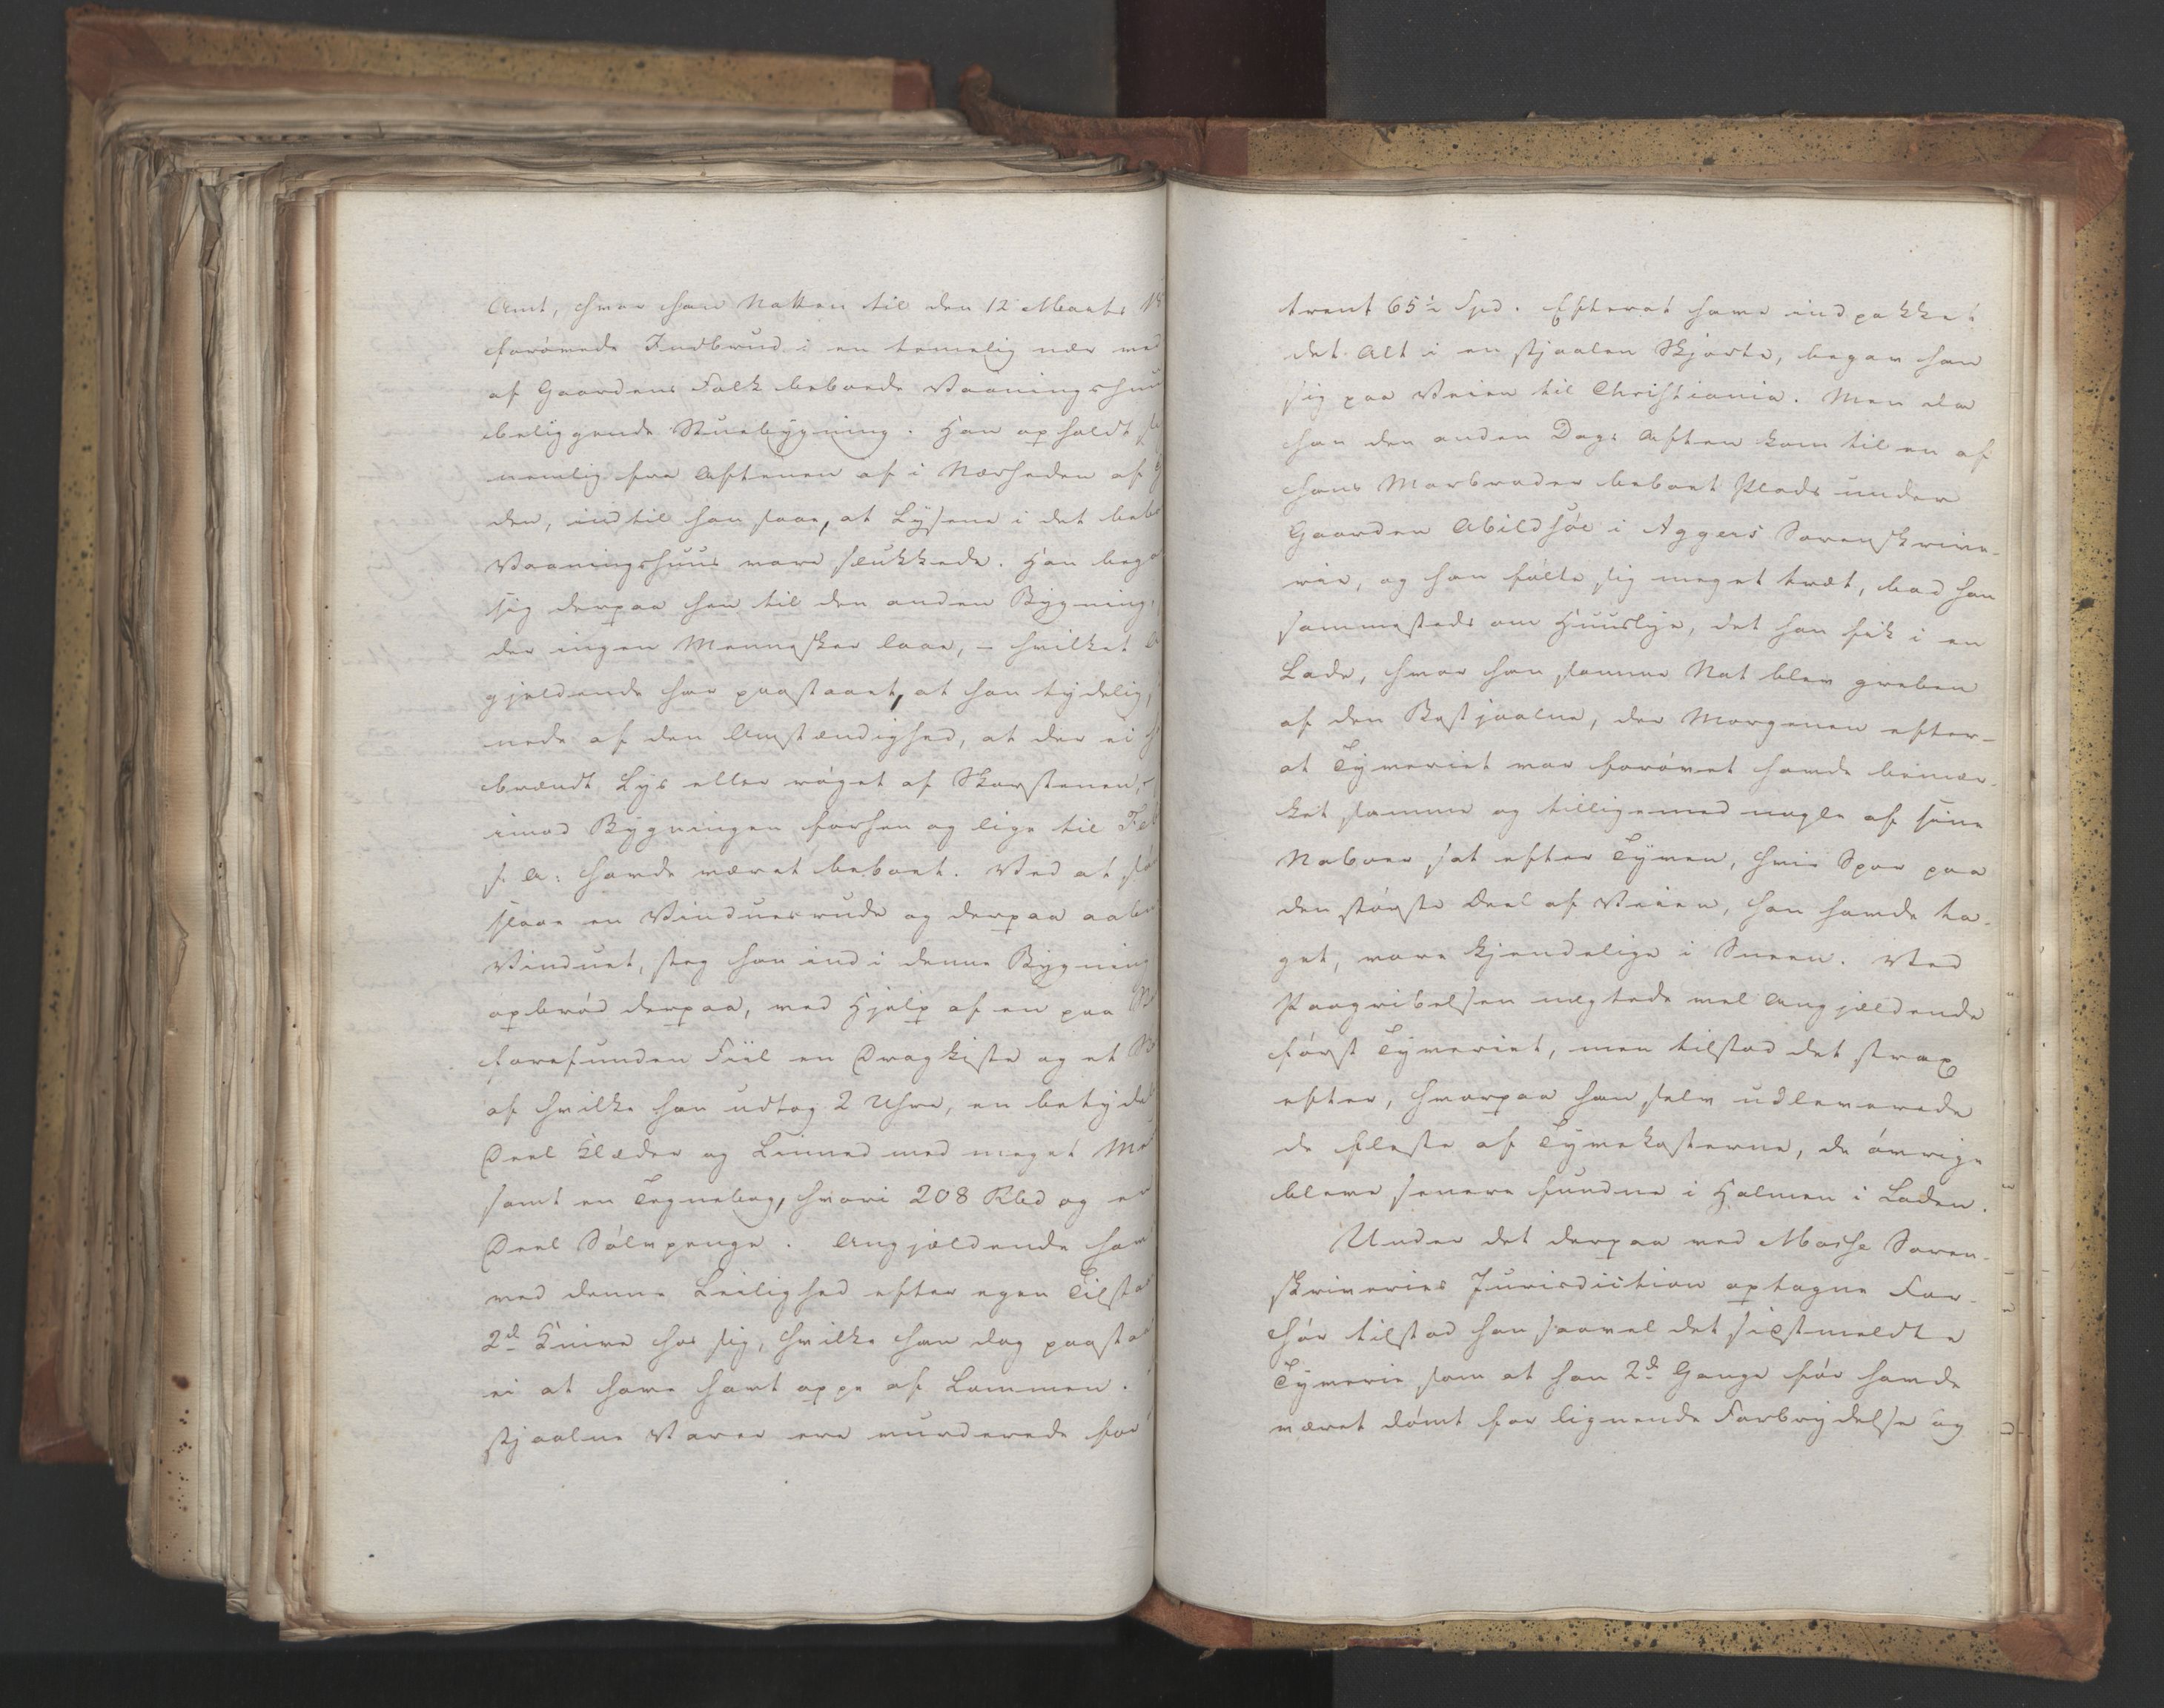 Amt, hvor han Natten til den 12 Marts 18
forövede Indbrud i en temelig nær ved
af Gaardens Folk beboede Vaaningshuu
beliggende Stuebygning. Han opholdt
nemlig fra Aftenen af i Nærheden af G
den, indtil han saae, at Lysene i det bebo
Vaaningshuus vare slukkede. Han bega
sig derpaa hen til den anden Bygning,
der ingen Mennesker laae, – hvilket A
gjeldende har paastaaet, at han tydelig
nede af den Omstændighed, at der ei h
brændt Lys eller röget af Skorstenen, –
imod Bygningen forhen og lige til Feb
s. A. havde været beboet. Ved at
slaae en Vinduesrude og derpaa aabn
Vinduet, steg han ind i denne Bygning
opbröd derpaa, med Hjelp af en paa
forefunden Fiil en Dragkiste og et
af hvilke han udtog 2 Uhre, en betydel
Deel Klæder og Linned med meget
samt en Tegnebog, hvori 208 Rbd og en
Deel Sölvpenge. Angjældende hav
ved denne Leilighed efter egen Tilsta
2de Knive hos sig, hvilke han dog paasta
ei at have havt oppe af Lommen.
stjaalne Varer ere vurderede for
trent 65½ Spd. Efterat have indpakket
det Alt i en stjaalen Skjorte, begav han
sig paa Veien til Christiania. Men da
han den anden Dags Aften kom til en af
hans Morbroder beboet Plads under
Gaarden Abildsöe i Aggers Sorenskrive-
rie, og han fölte sig meget træt, bad han
sammesteds om Huuslye, det han fik i en
Lade, hvor han samme Nat blev greben
af den Bestjaalne, der Morgenen efter-
at Tyveriet var forövet havde bemær-
ket samme og tilligemed nogle af sine
Naboer sat efter Tyven, hvis Spor paa
den störste Deel af Veien, han havde ta-
get, vare kjendelige i Sneen. Ved
Paagribelsen negtede vel Angjældende
först Tyveriet, men tilstod det strax
efter, hvorpaa han selv udleverede
de fleste af Tyvekosterne, de övrige
bleve senere fundne i Halmen i Laden.
Under det derpaa ved Mosse Soren-
skriveries Jurisdiction optagne For-
hör tilstod han saavel det sidstmeldte
Tyverie som at han 2de Gange för havde
været dömt for lignende Forbrydelse og